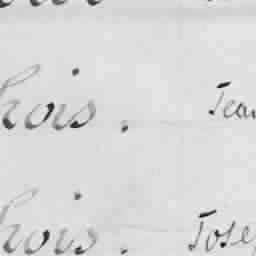 hois. Jean
hois. Jose